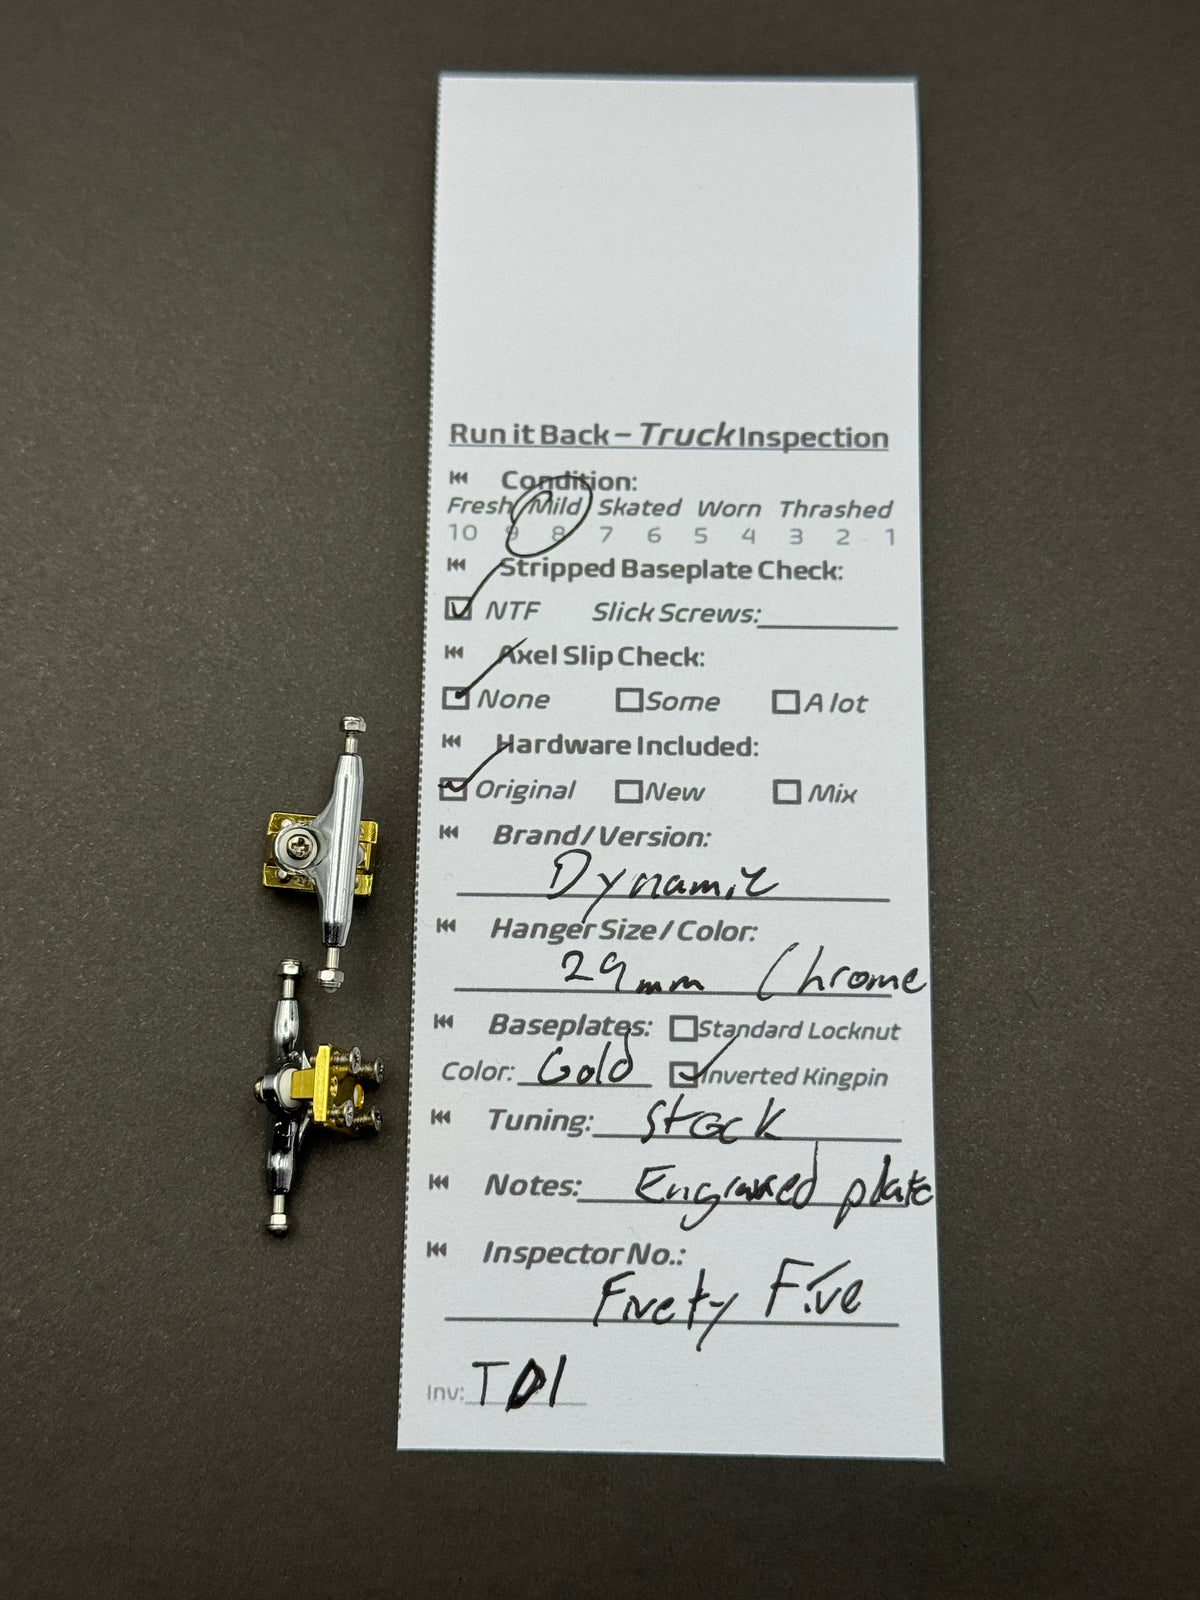 Run it Back – Truck Inspection
Condition:
Fresh Mild Skated Worn Thrashed
10 9 8 7 6 5 4 3 2 1
Stripped Baseplate Check:
NTF Slick Screws:
Axel Slip Check:
None Some A lot
Hardware Included:
Original New Mix
Brand/Version:
Dynamic
Hanger Size/Color:
29mm Chrome
Baseplates: Standard Locknut
Color: Gold Inverted Kingpin
Tuning: Stock
Notes: Engraved plate
Inspector No.:
Fivety Five
Inv: TD1